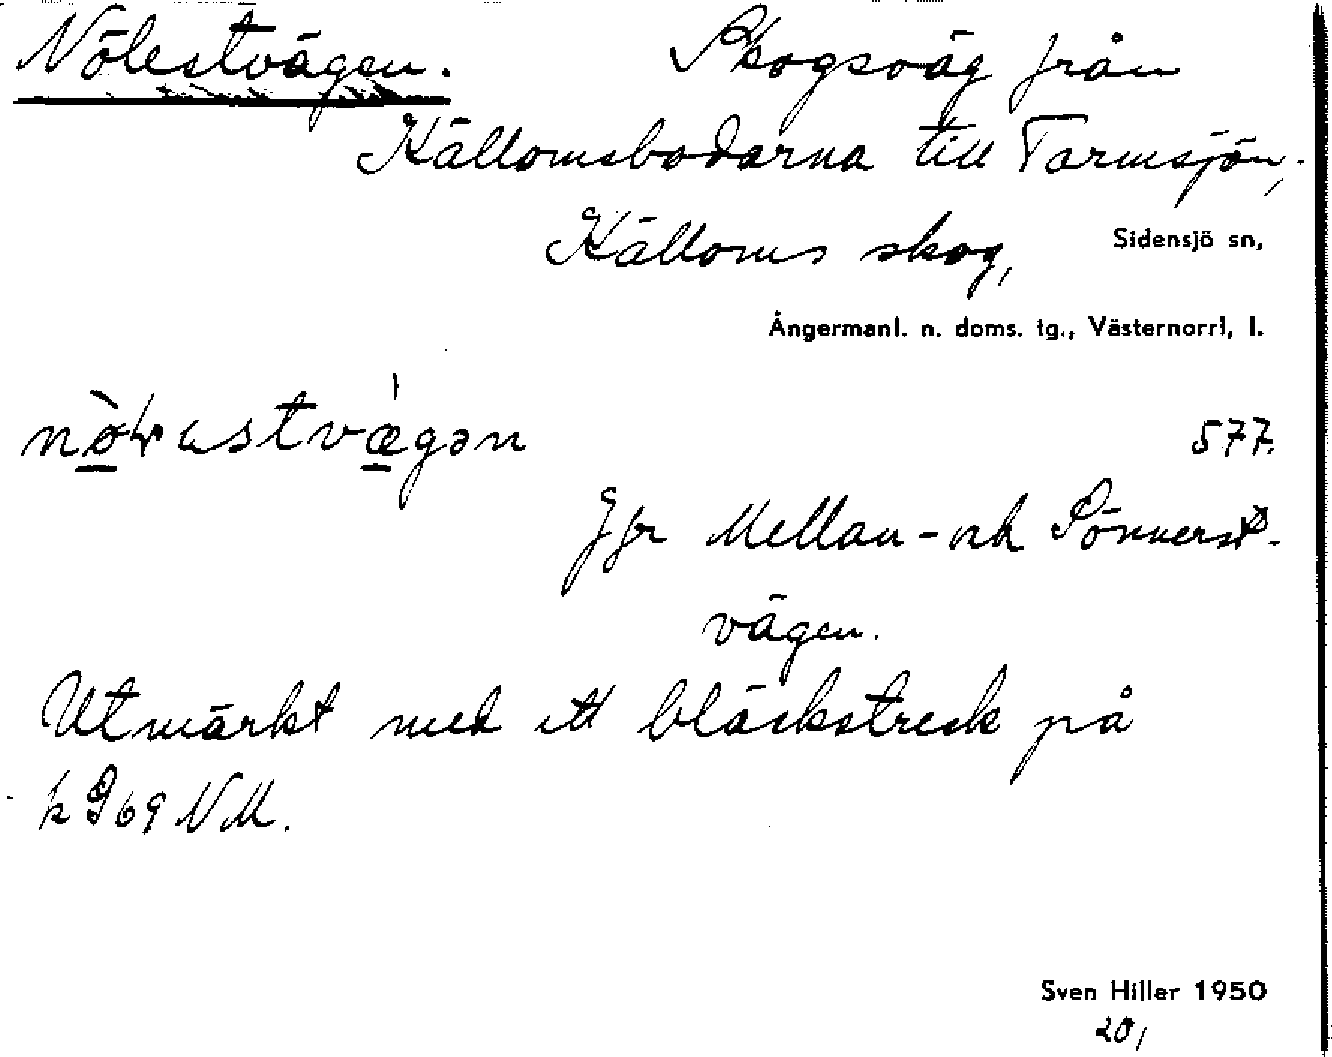 Nölestvägen. Skogsväg från
Källomsbodarna till Tarmsjön,
Källoms skog, Sidensjö sn,
Ångermanl. n. doms. tg., Västernorrl, l.
577.
Jfr Mellan- och Sönnerst-
vägen.
Utmärkt med ett bläckstreck på
k 969 NM.
Sven Hiller 1950
20,